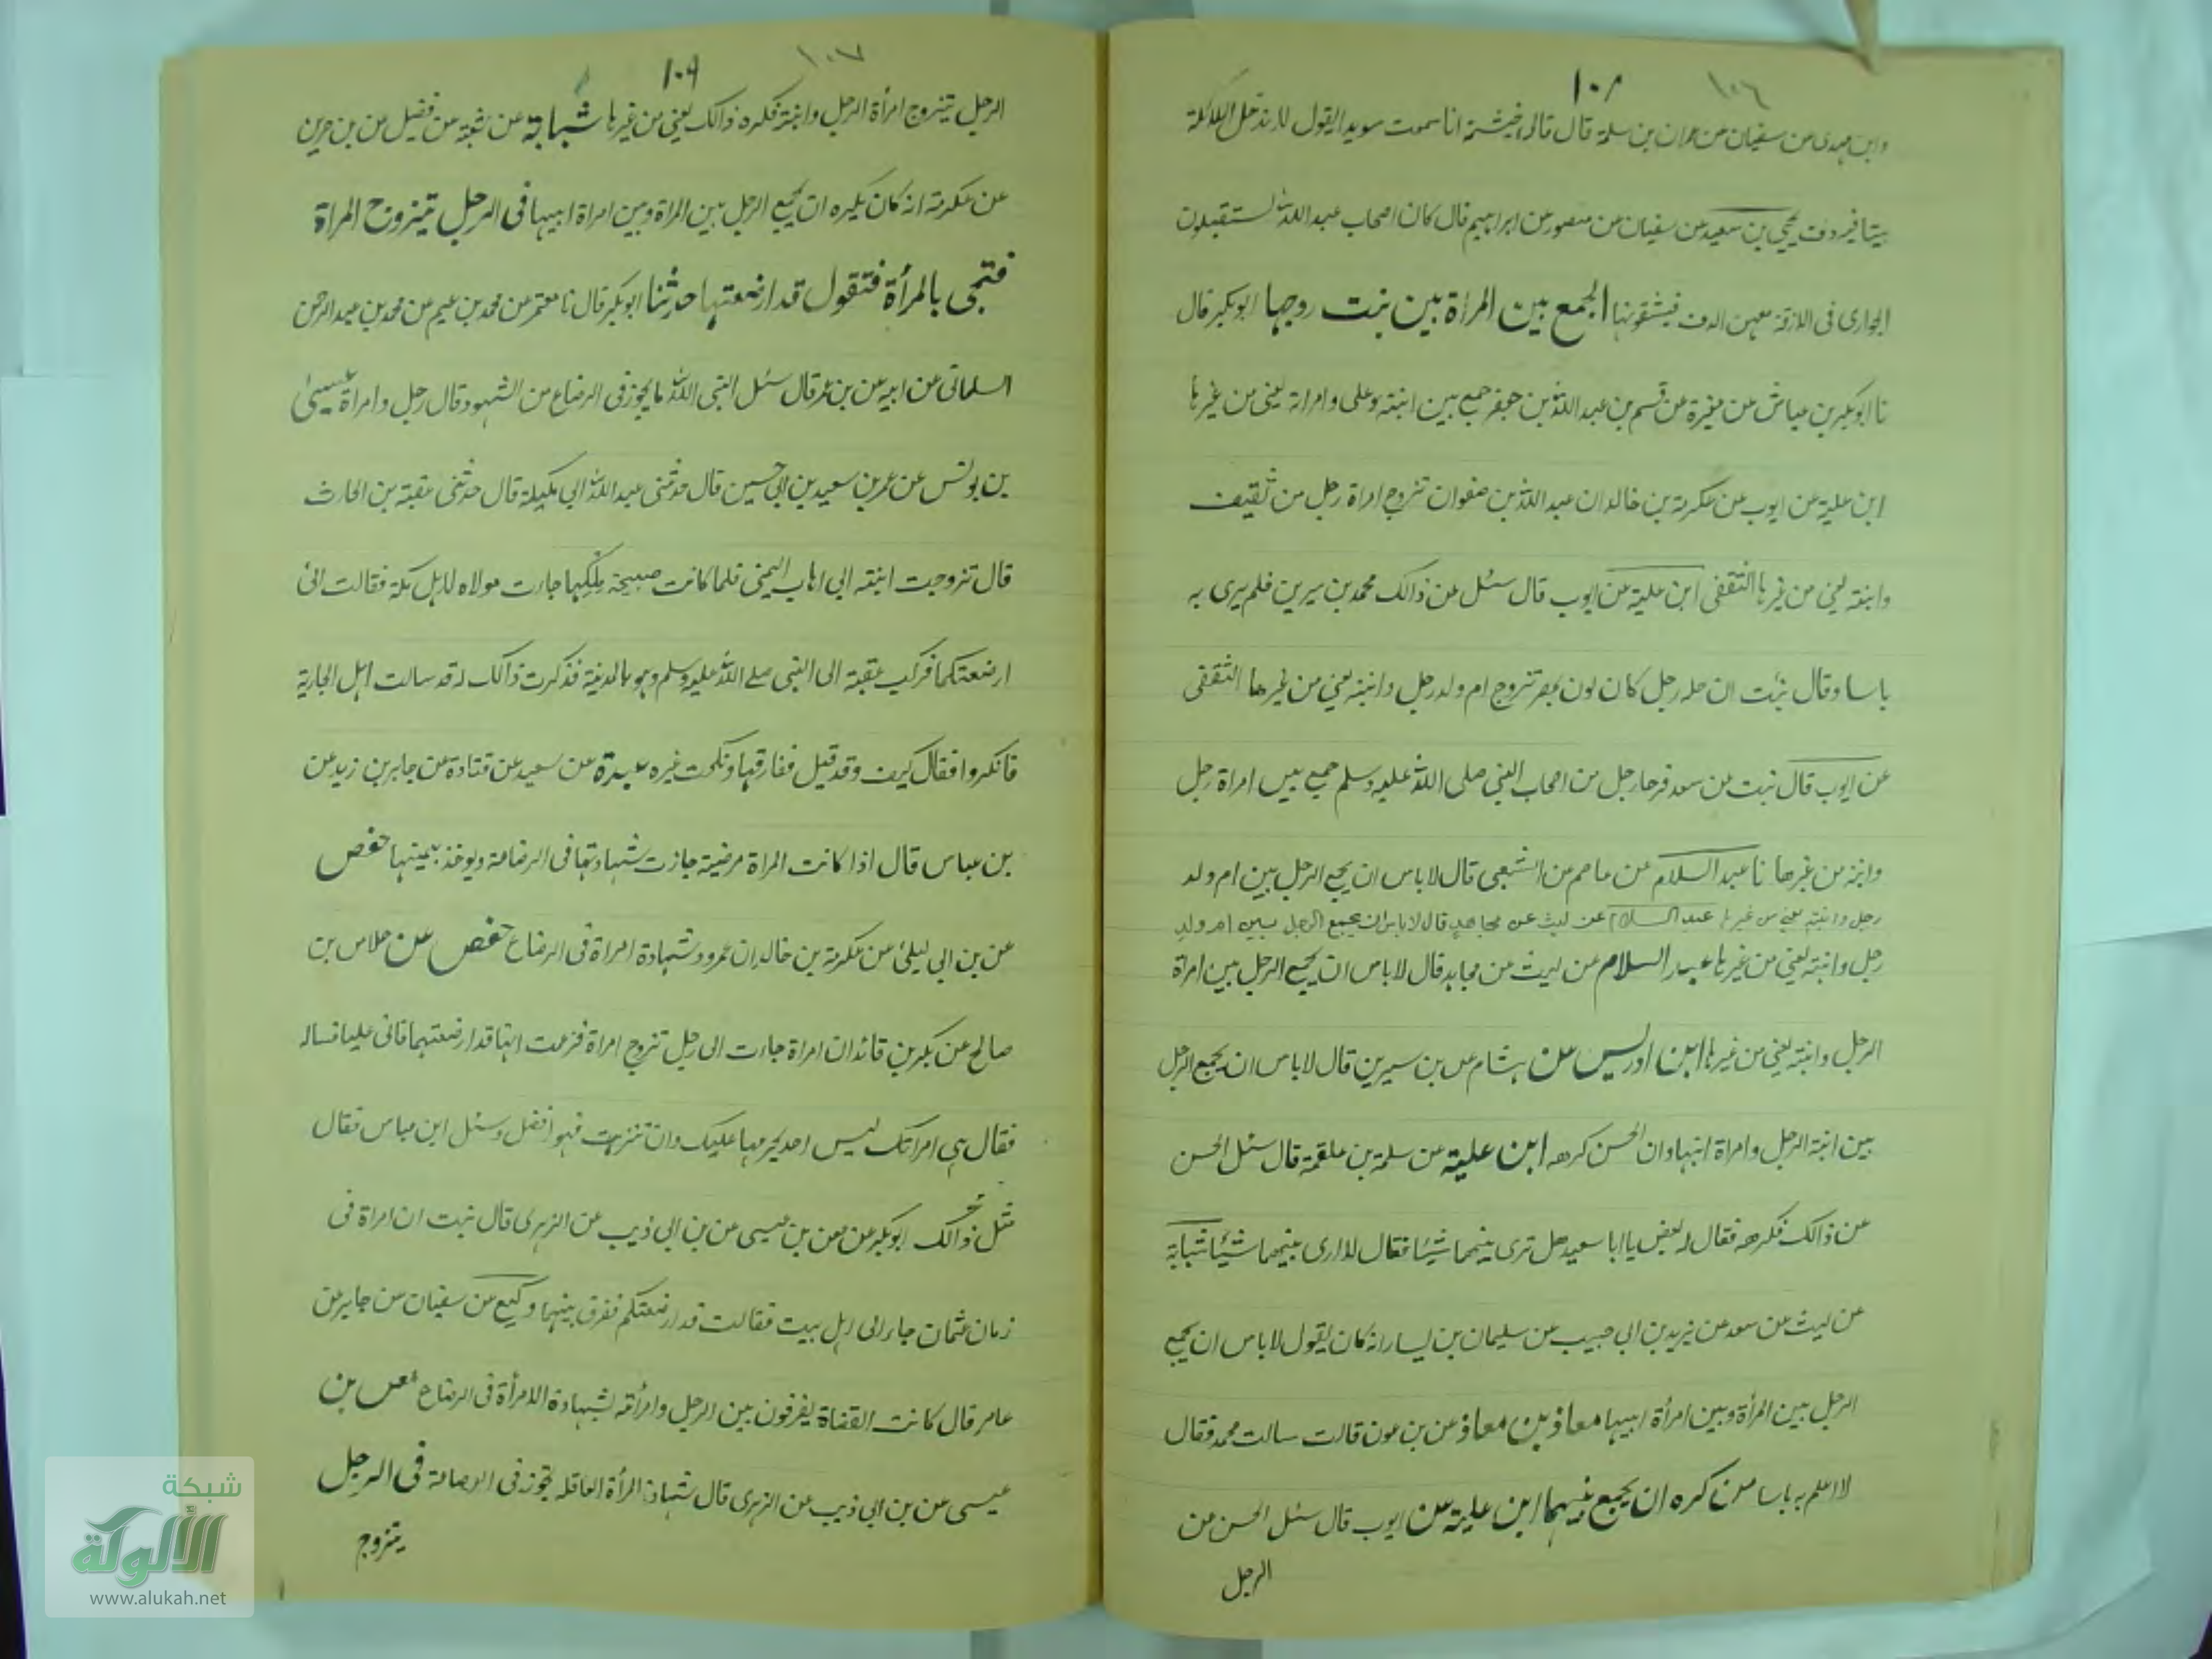 ١٠٨ ١٠٦
وابن مهدى عن سفيان عن عمران بن سلمة قال قال خيثمة انا سمعت سويدا يقول لا تدخل الملائكة
بيتا فيه دف يحيى بن سعيد عن سفيان عن منصور عن ابراهيم قال كان اصحاب عبد الله يستقبلون
الجوارى فى الازقة معهن الدف فيشقونها الجمع بين المراة بين بنت زوجها ابو بكر قال
نا ابو بكر بن عياش عن مغيرة عن قسم بن عبد الله بن جعفر جمع بين ابنته وعلى وامراته يعنى من غيرها
ابن علية عن ايوب عن عكرمة بن خالد ان عبد الله بن صفوان تزوج امراة رجل من ثقيف
وابنته يعنى من غيرها الثقفى ابن علية عن ايوب قال سئل عن ذالك محمد بن سيرين فلم يرى به
باسا وقال نبئت ان حله رجل كان لون بمصر تزوج ام ولد رجل وابنته يعنى من غيرها الثقفى
عن ايوب قال نبت عن سعد فرحا رجل من اصحاب النبي صلى الله عليه وسلم جمع بين امراة رجل
وابنته من غيرها نا عبد السلام عن عاصم عن الشعبى قال لا باس ان يجمع الرجل بين ام ولد
رجل وابنته يعنى من غيرها عبد السلام عن ليث عن مجاهد قال لا باس ان يجمع الرجل بين ام ولد
رجل وابنته يعنى من غيرها عبد السلام عن ليث عن مجاهد قال لا باس ان يجمع الرجل بين امراة
الرجل وابنته يعنى من غيرها ابن ادريس عن هشام عن بن سيرين قال لا باس ان يجمع الرجل
بين ابنة الرجل وامراة ابنها وان الحسن كرهه ابن علية عن سلمة بن علقمة قال سئل الحسن
عن ذالك فكرهه فقال له بعض يا ابا سعيد هل ترى بينهما شيئا فقال لا ارى بينهما شيئا شبابة
عن ليث عن سعد عن يزيد بن ابى حبيب عن سليمان بن يسار انه كان يقول لا باس ان يجمع
الرجل بين المرأة وبين امرأة ابيها معاذ بن معاذ عن بن عون قالت سالت محمد فقال
لا اعلم به باسا من كره ان يجمع بينهما ابن علية عن ايوب قال سئل الحسن عن
الرجل
١٠٩ ١٠٧
الرجل يتزوج امرأة الرجل وابنته فكره ذالك يعنى من غيرها شبابة عن شعبة عن فضيل عن بن حرين
عن عكرمة انه كان يكره ان يجمع الرجل بين المراة وبين امراة ابيها فى الرجل يتزوج المراة
فتجى بالمرأة فتقول قد ارضعتها حدثنا ابو بكر قال نا معتمر عن محمد بن عيم عن محمد بن عبد الرحمن
السلمانى عن ابيه عن بن عمر قال سئل النبى الله ما يجوز فى الرضاع من الشهود قال رجل وامراة عيسى
بن يونس عن عمر بن سعيد بن ابى حسين قال حدثنى عبد الله ابى مكيلة قال حدثنى عقبة بن الحارث
قال تزوجت ابنته ابى اهاب اليمنى فلما كانت صبيحة ملكها جاءت مولاه لاهل مكة فقالت انى
ارضعتكما فركب عقبة الى النبى صلے الله عليه وسلم وهو بالمدينة فذكرت ذالك له قد سالت اهل الجارية
فانكروا فقال كيف وقد قيل ففارقها ونكحت غيره عبدة عن سعيد عن قتادة عن جابر بن زيد عن
بن عباس قال اذا كانت المراة مرضية جازت شهادتها فى الرضاعة ويوخذ بيمينها حفص
عن بن ابى ليلى عن عكرمة بن خالد ان عمر رد شهادة امراة فى الرضاع حفص عن حلاس بن
صالح عن بكر بن قائد ان امراة جاءت الى رجل تزوج امراة فزعمت انها قد ارضعتهما فاتى عليا فساله
فقال هى امراتك ليس احد يحرمها عليك وان تنزهت فهو افضل وسئل ابن عباس فقال
نحو
مثل ذالك ابو بكر عن معن بن عيسى عن بن ابى ذيب عن الزهرى قال نبت ان امراة فى
زمان عثمان جاء الى اهل بيت فقالت قد ارضعتكم ففرق بينهما وكيع عن سفيان عن جابر عن
عامر قال كانت القضاة يفرقون بين الرجل وامرأته بشهادة الامرأة فى الرضاع معن بن
عيسى عن بن ابى ذيب عن الزهرى قال شهادة المرأة العاقله تجوز فى الرضاعة فى الرجل
يتزوج
شبكة
الألوكة
www.alukah.net